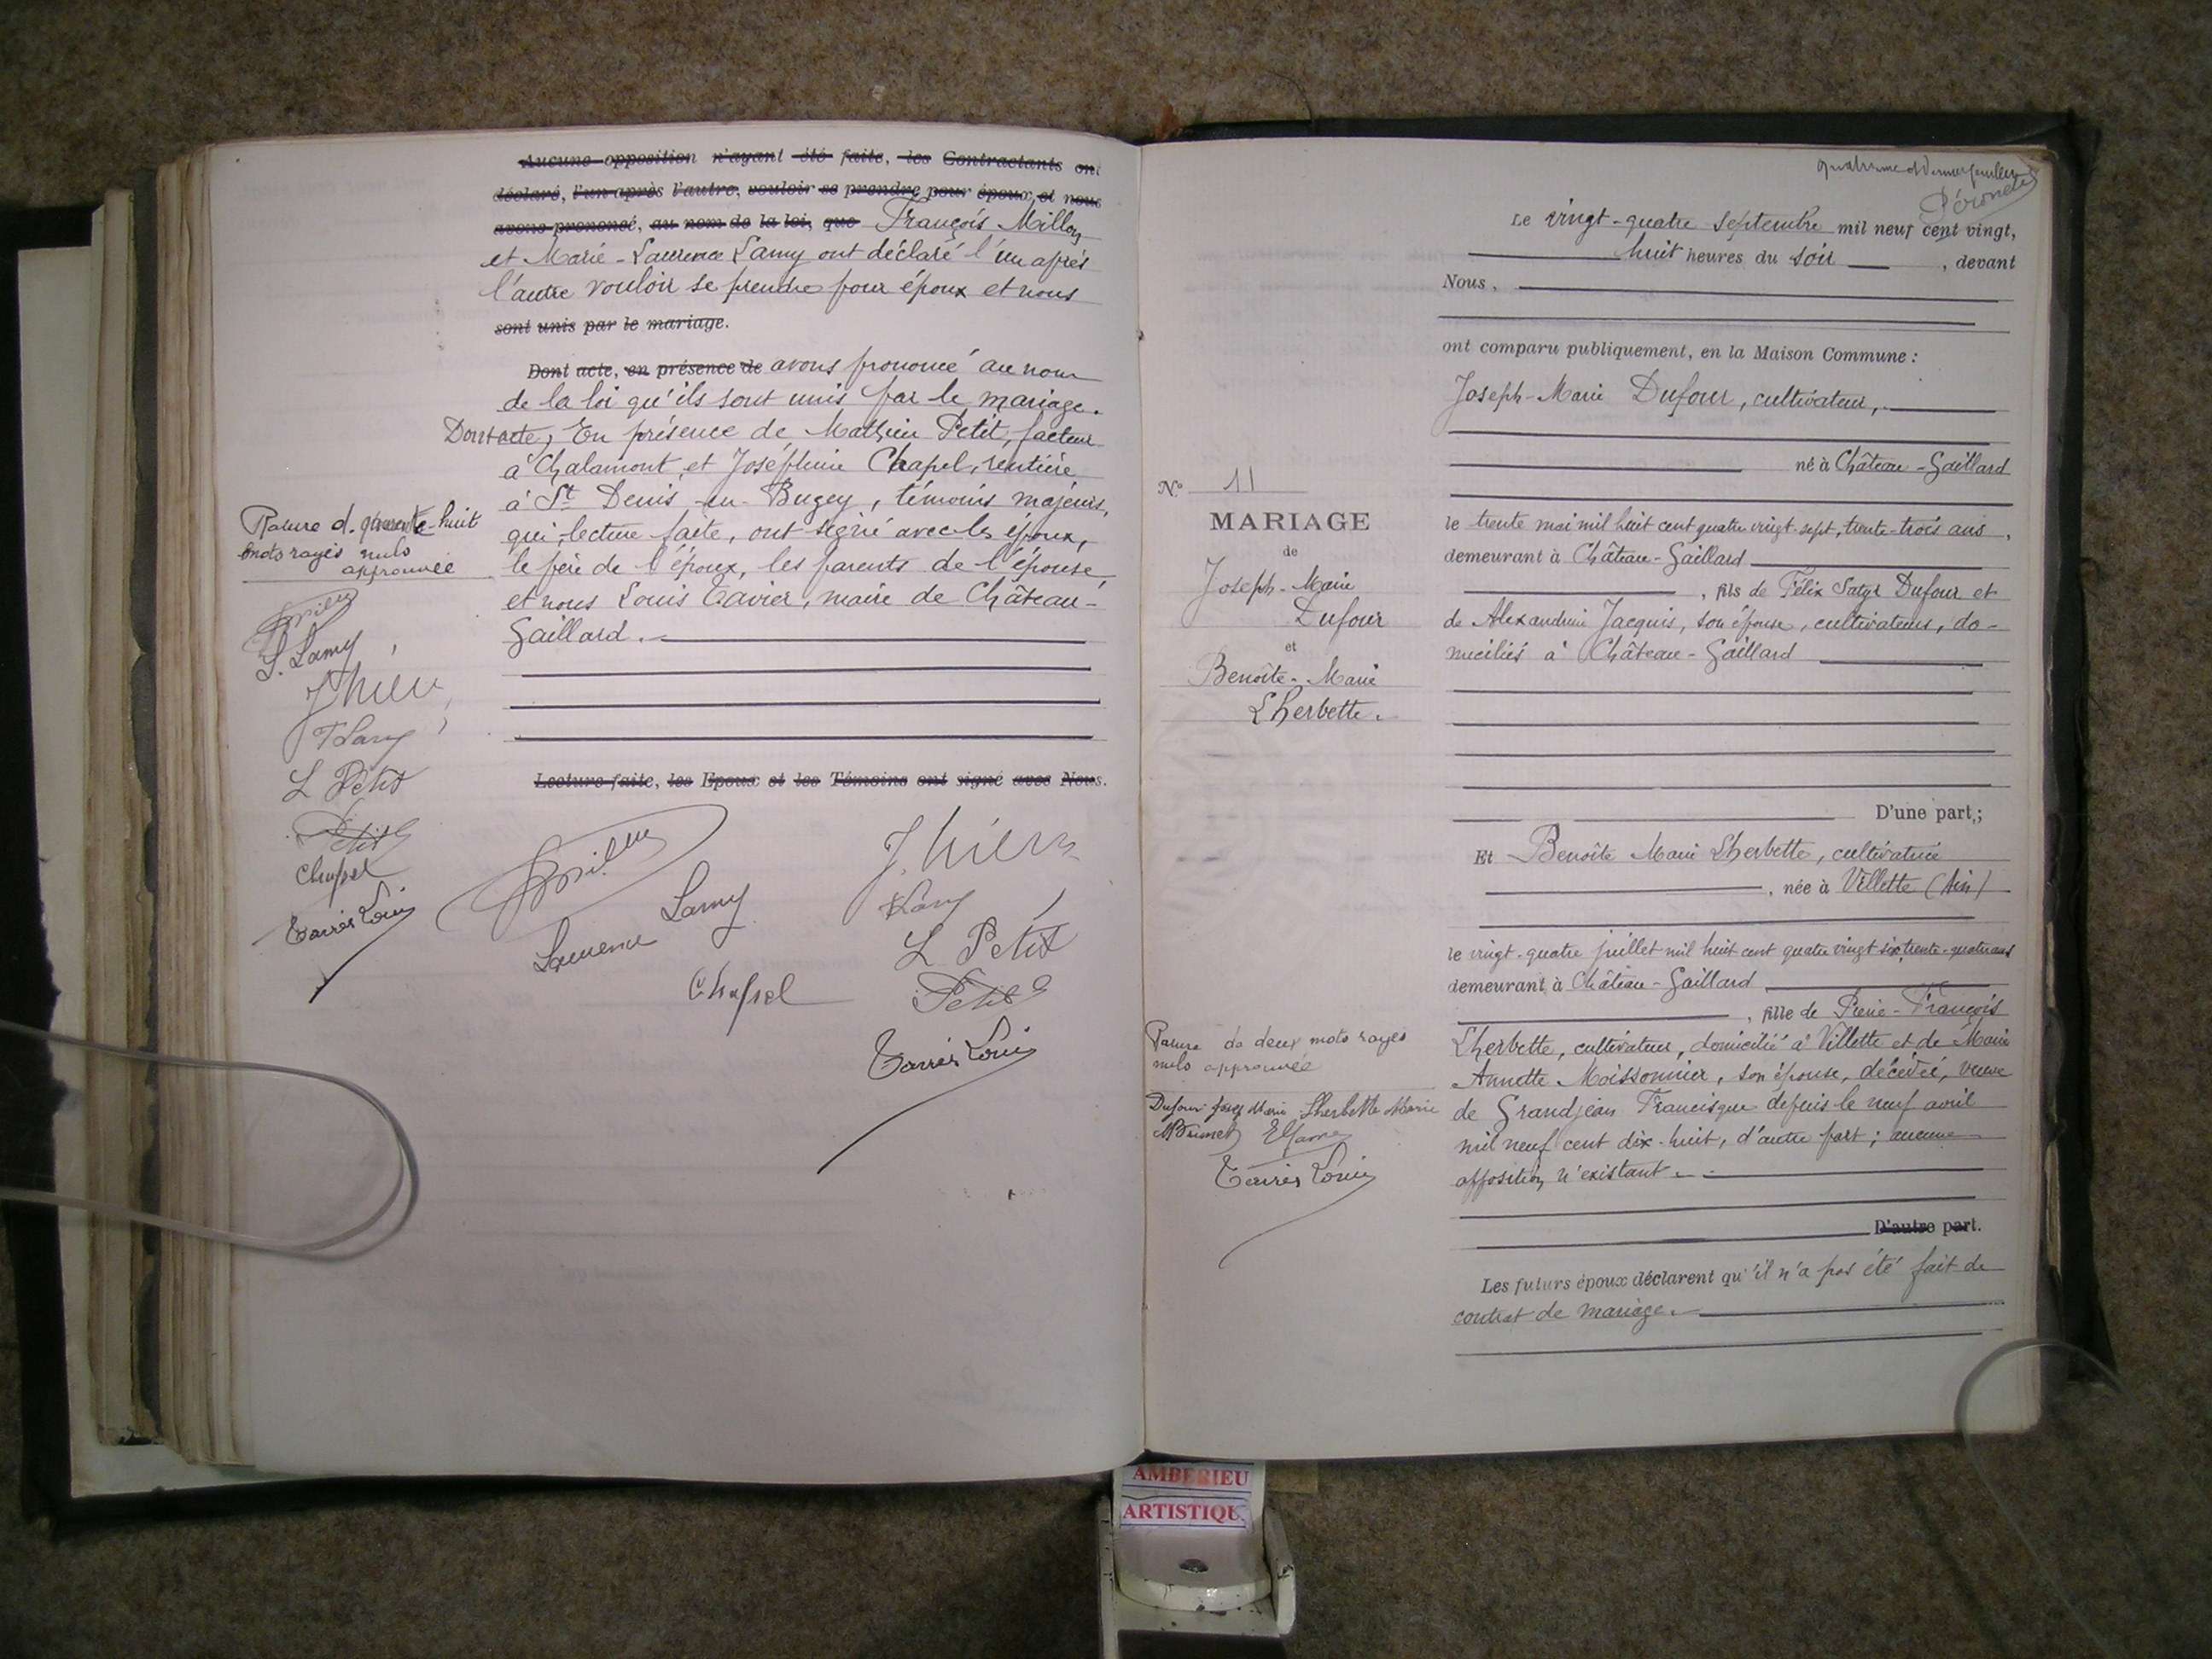 Aucune opposition n'ayant été faite, les Contractants ont
déclaré, l'un après l'autre, vouloir se prendre pour époux, et nous
avons prononcé, au nom de la loi, que François Millon
et Marie-Laurence Lamy ont déclaré l'un après
l'autre vouloir se prendre pour époux et nous
sont unis par le mariage.
Dont acte, en présence de avons prononcé au nom
de la loi qu'ils sont unis par le mariage.
Dont acte, En présence de Mathieu Petit, facteur
à Chalamont, et Joséphine Chapel, rentière
à St Denis-en-Bugey, témoins majeurs,
qui, lecture faite, ont signé avec les époux,
le père de l'époux, les parents de l'épouse
et nous Louis Tavier, maire de Château-
Gaillard.
Lecture faite, les Epoux et les Témoins ont signé avec Nous.
Rature de quarante-huit
mots rayés nuls
approuvée
L. Lamy
L Petit
Petit
Chapel
Louis
Lamy
Laurence
Chapel
L Petit
Petit
Louis
quatrième et dernier feuillet
Le vingt-quatre septembre mil neuf cent vingt,
huit heures du soir, devant
Nous,
ont comparu publiquement, en la Maison Commune :
Joseph-Marie Dufour, cultivateur,
né à Château-Gaillard
le trente mai mil huit cent quatre vingt-sept, trente-trois ans,
demeurant à Château-Gaillard
, fils de Félix Dufour et
de Alexandrine Jacquis, son épouse, cultivateurs, do-
miciliés à Château-Gaillard
D'une part,;
Et Benoîte Marie Lherbette, cultivatrice
, née à Villette (Ain)
le vingt-quatre juillet mil huit cent quatre vingt six, trente-quatre ans
demeurant à Château-Gaillard
, fille de Pierre-François
Lherbette, cultivateur, domicilié à Villette et de Marie
Annette Moissonnier, son épouse, décédée, veuve
de Grandjean Francisque depuis le neuf avril
mil neuf cent dix-huit, d'autre part ; aucune
opposition n'existant.
D'autre part.
Les futurs époux déclarent qu'il n'a pas été fait de
contrat de mariage.
N° 11
MARIAGE
de
Joseph-Marie
Dufour
et
Benoîte-Marie
Lherbette.
Rature de deux mots rayés
nuls approuvée
Dufour Marie Lherbette Marie
Louis
AMBERIEU
ARTISTIQU